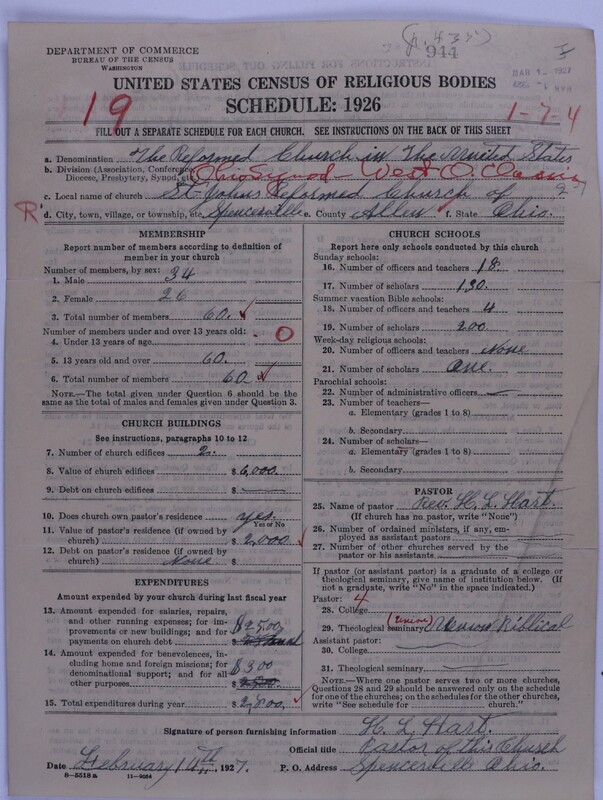 (p. 435)
944
DEPARTMENT OF COMMERCE
BUREAU OF THE CENSUS
WASHINGTON
MAR 1927
UNITED STATES CENSUS OF RELIGIOUS BODIES
SCHEDULE: 1926
19
1-7-4
FILL OUT A SEPARATE SCHEDULE FOR EACH CHURCH. SEE INSTRUCTIONS ON THE BACK OF THIS SHEET
a. Denomination The Reformed Church in The United States
b. Division (Association, Conference, Diocese, Presbytery, Synod, etc. Ohio Synod - West O. Classis
c. Local name of church St. Johns Reformed Church of
R d. City, town, village, or township, etc. Spencerville e. County Allen f. State Ohio.
MEMBERSHIP
Report number of members according to definition of
member in your church
Number of members, by sex:
1. Male 34
2. Female 26
3. Total number of members 60.
Number of members under and over 13 years old:
4. Under 13 years of age 0
5. 13 years old and over 60.
6. Total number of members 60
NOTE.—The total given under Question 6 should be the
same as the total of males and females given under Question 3.
CHURCH BUILDINGS
See instructions, paragraphs 10 to 12
7. Number of church edifices 2.
8. Value of church edifices $6,000.
9. Debt on church edifices $
10. Does church own pastor's residence yes.
Yes or No
11. Value of pastor's residence (if owned by
church) $2,000
12. Debt on pastor's residence (if owned by
church) None
EXPENDITURES
Amount expended by your church during last fiscal year
13. Amount expended for salaries, repairs,
and other running expenses; for im-
provements or new buildings; and for
payments on church debt $2500
14. Amount expended for benevolences, in-
cluding home and foreign missions; for
denominational support; and for all
other purposes $300
15. Total expenditures during year $2,800.
CHURCH SCHOOLS
Report here only schools conducted by this church
Sunday schools:
16. Number of officers and teachers 18.
17. Number of scholars 130.
Summer vacation Bible schools:
18. Number of officers and teachers 4
19. Number of scholars 200
Week-day religious schools:
20. Number of officers and teachers None
21. Number of scholars
Parochial schools:
22. Number of administrative officers
23. Number of teachers—
a. Elementary (grades 1 to 8)
b. Secondary
24. Number of scholars—
a. Elementary (grades 1 to 8)
b. Secondary
PASTOR
25. Name of pastor Rev. H. L. Hart.
(If church has no pastor, write "None")
26. Number of ordained ministers, if any, em-
ployed as assistant pastors
27. Number of other churches served by the
pastor or his assistants
If pastor (or assistant pastor) is a graduate of a college or
theological seminary, give name of institution below. (If
not a graduate, write "No" in the space indicated.)
Pastor: 4
28. College
(Union)
29. Theological seminary Union Biblical
Assistant pastor:
30. College
31. Theological seminary
NOTE.—Where one pastor serves two or more churches,
Questions 28 and 29 should be answered only on the schedule
for one of the churches; on the schedules for the other churches,
write "See schedule for church."
Signature of person furnishing information H. L. Hart.
Official title Pastor of this Church
Date February 14th, 1927. P. O. Address Spencerville Ohio.
8—5518a 11—9264